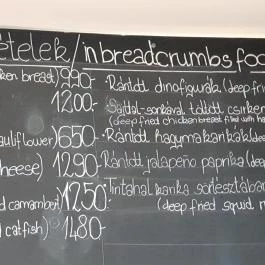 ételek/in breadcrumbs foo
ken breast) 990.- Rántott dinofigurák (deep fri
1200.- Sajttal-sonkával töltött csirkem
(deep fried chicken breast filled with ha
auliflower) 650.- Rántott hagymakarikák (dee
heese) 1290.- Rántott jalapeño paprika (deep
d camambert) 1250.- Tintahal karika sörtésztában
(deep fried squid r
d catfish) 1480.-